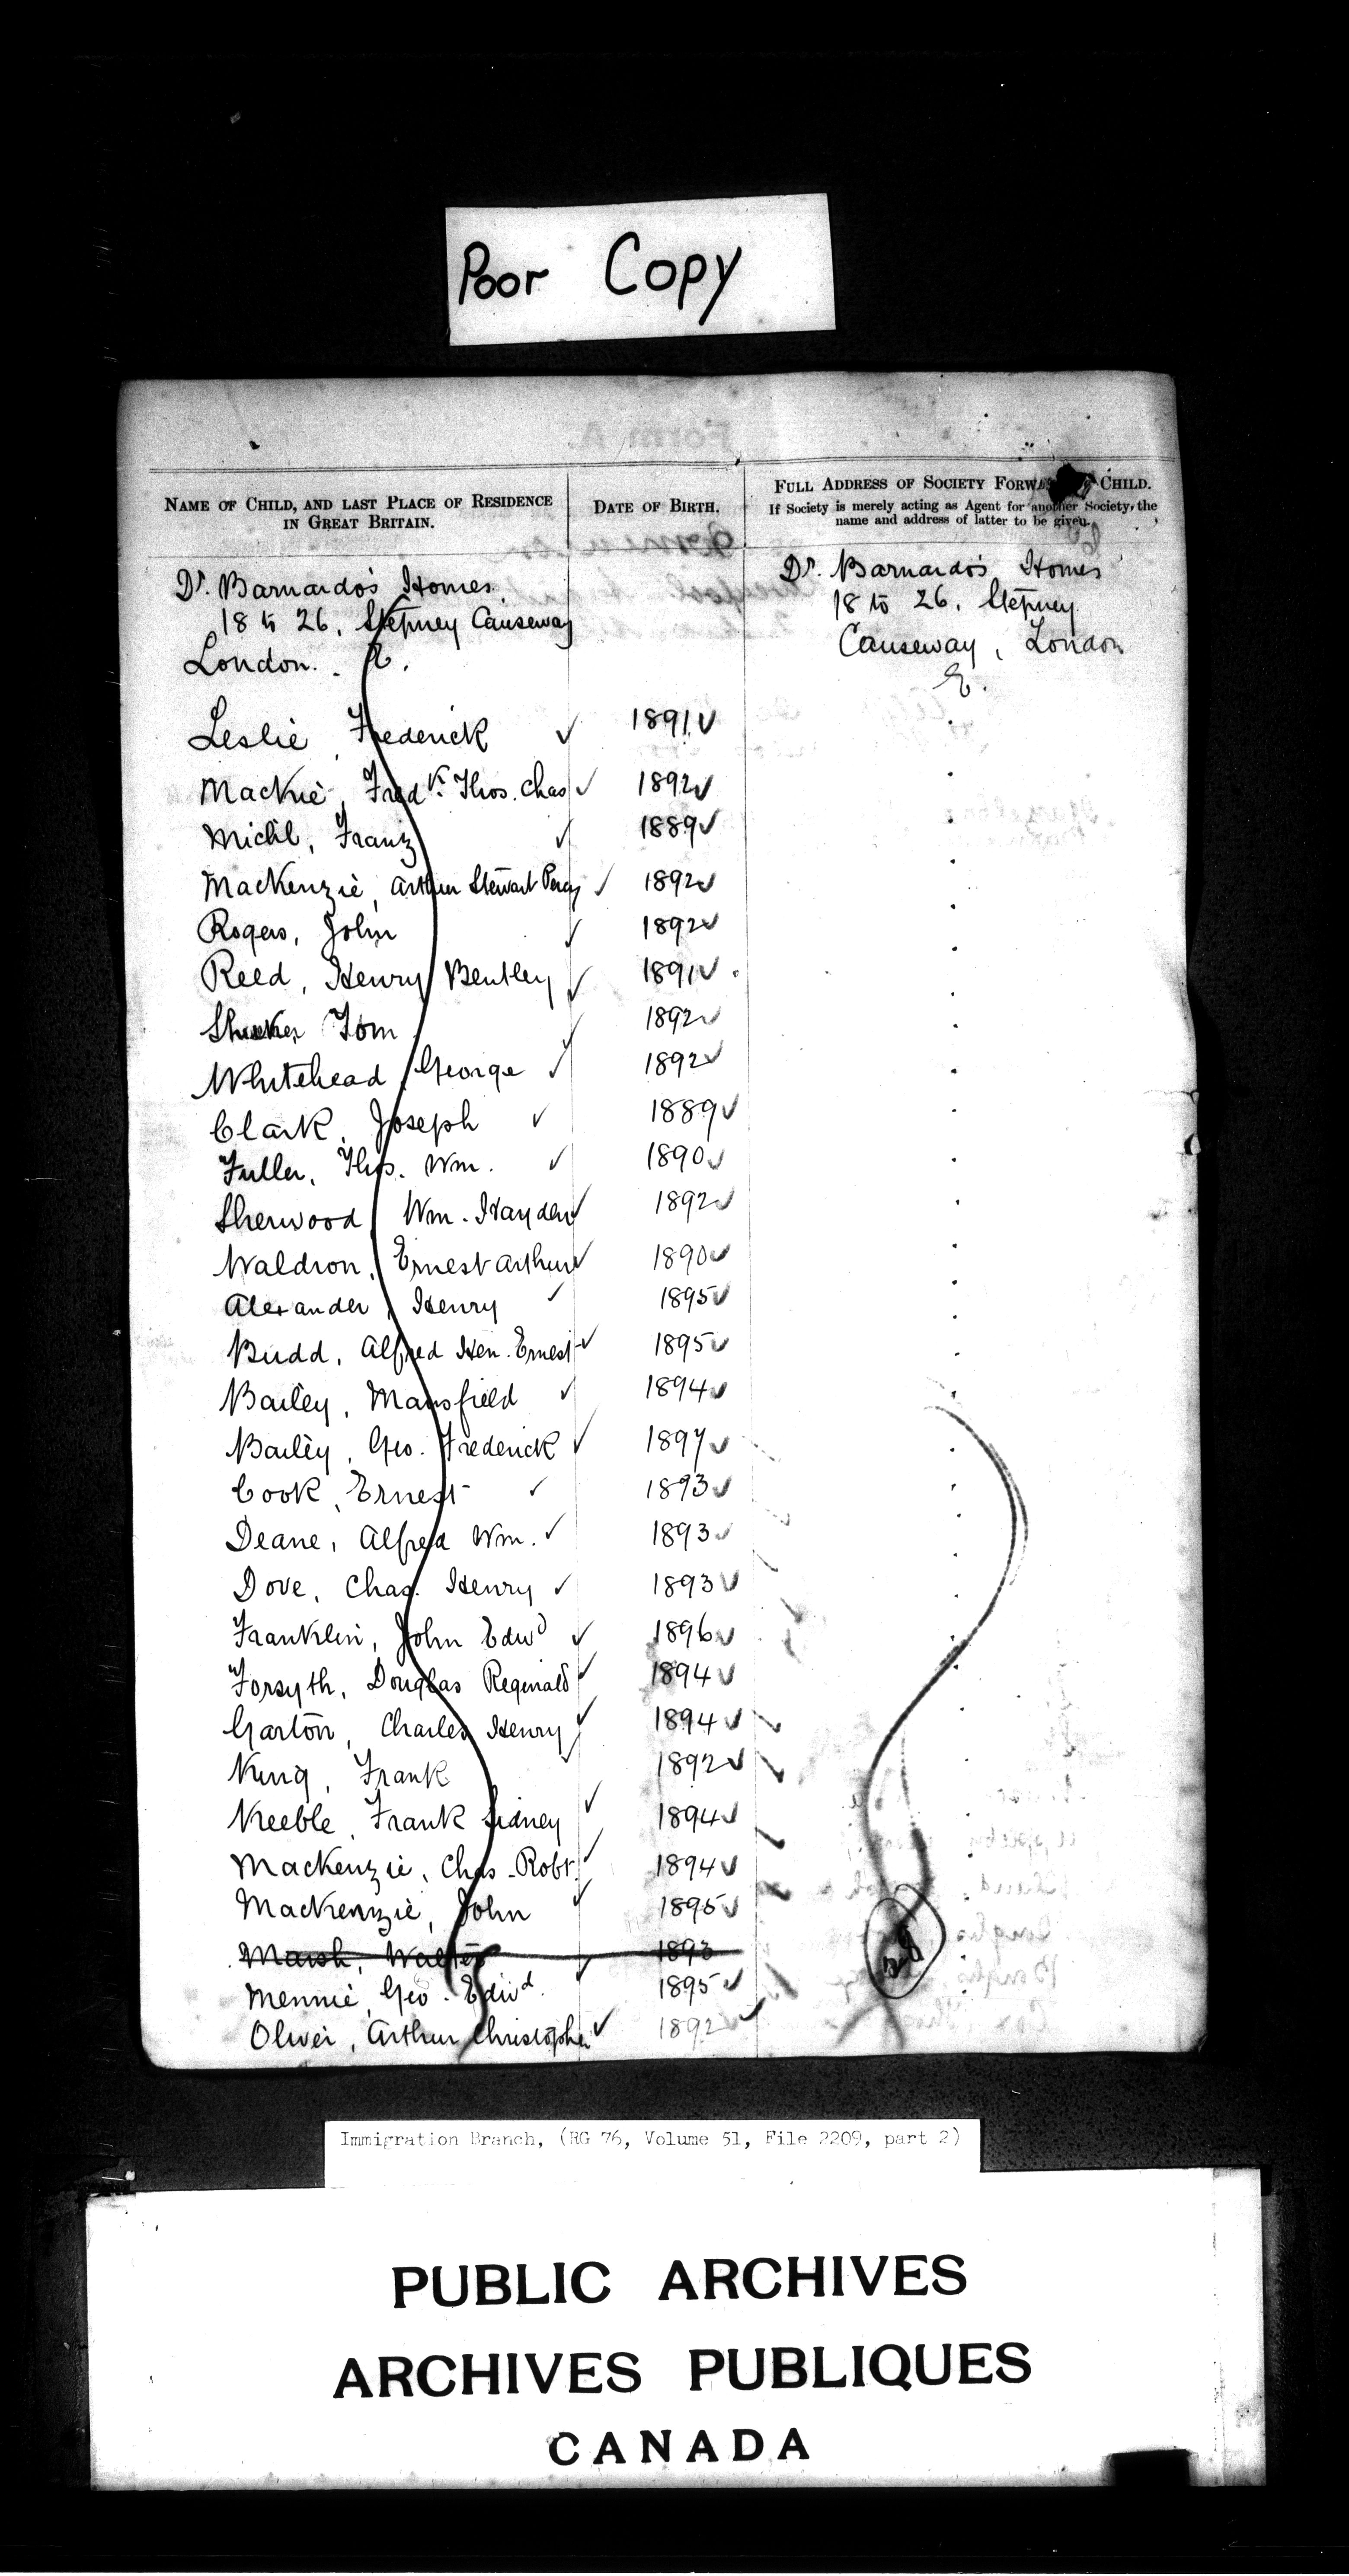 Poor Copy
NAME OF CHILD, AND LAST PLACE OF RESIDENCE
IN GREAT BRITAIN.
DATE OF BIRTH.
FULL ADDRESS OF SOCIETY FORWARDING CHILD.
If Society is merely acting as Agent for another Society, the
name and address of latter to be given.
Dr. Barnardo's Homes
18 to 26, Stepney Causeway
London. E.
Dr. Barnardo's Homes
18 to 26, Stepney
Causeway, London
E.
Leslie, Frederick ✓ 1891 ✓
Mackie, Fredk. Thos. Chas ✓ 1892 ✓
Michl, Franz ✓ 1889 ✓
MacKenzie, Arthur Stewart Percy ✓ 1892 ✓
Rogers, John ✓ 1892 ✓
Reed, Henry Bentley ✓ 1891 ✓
Tom ✓ 1892 ✓
Whitehead, George ✓ 1892 ✓
Clark, Joseph ✓ 1889 ✓
Fuller, Thos. Wm. ✓ 1890 ✓
Sherwood, Wm. Hayden ✓ 1892 ✓
Waldron, Ernest Arthur ✓ 1890 ✓
Alexander, Henry ✓ 1895 ✓
Budd, Alfred Hen. Ernest ✓ 1895 ✓
Bailey, Mansfield ✓ 1894 ✓
Bailey, Geo. Frederick ✓ 1897 ✓
Cook, Ernest ✓ 1893 ✓
Deane, Alfred Wm. ✓ 1893 ✓
Dove, Chas. Henry ✓ 1893 ✓
Franklin, John Edwd ✓ 1896 ✓
Forsyth, Douglas Reginald ✓ 1894 ✓
Garton, Charles Henry ✓ 1894 ✓
King, Frank ✓ 1892 ✓
Keeble, Frank Sidney ✓ 1894 ✓
Mackenzie, Chas. Robt. ✓ 1894 ✓
MacKenzie, John ✓ 1895 ✓
Marsh, Walter 1893
Mennie, Geo. Edwd. ✓ 1895 ✓
Oliver, Arthur Christopher ✓ 1892 ✓
Immigration Branch, (RG 76, Volume 51, File 2209, part 2)
PUBLIC ARCHIVES
ARCHIVES PUBLIQUES
CANADA